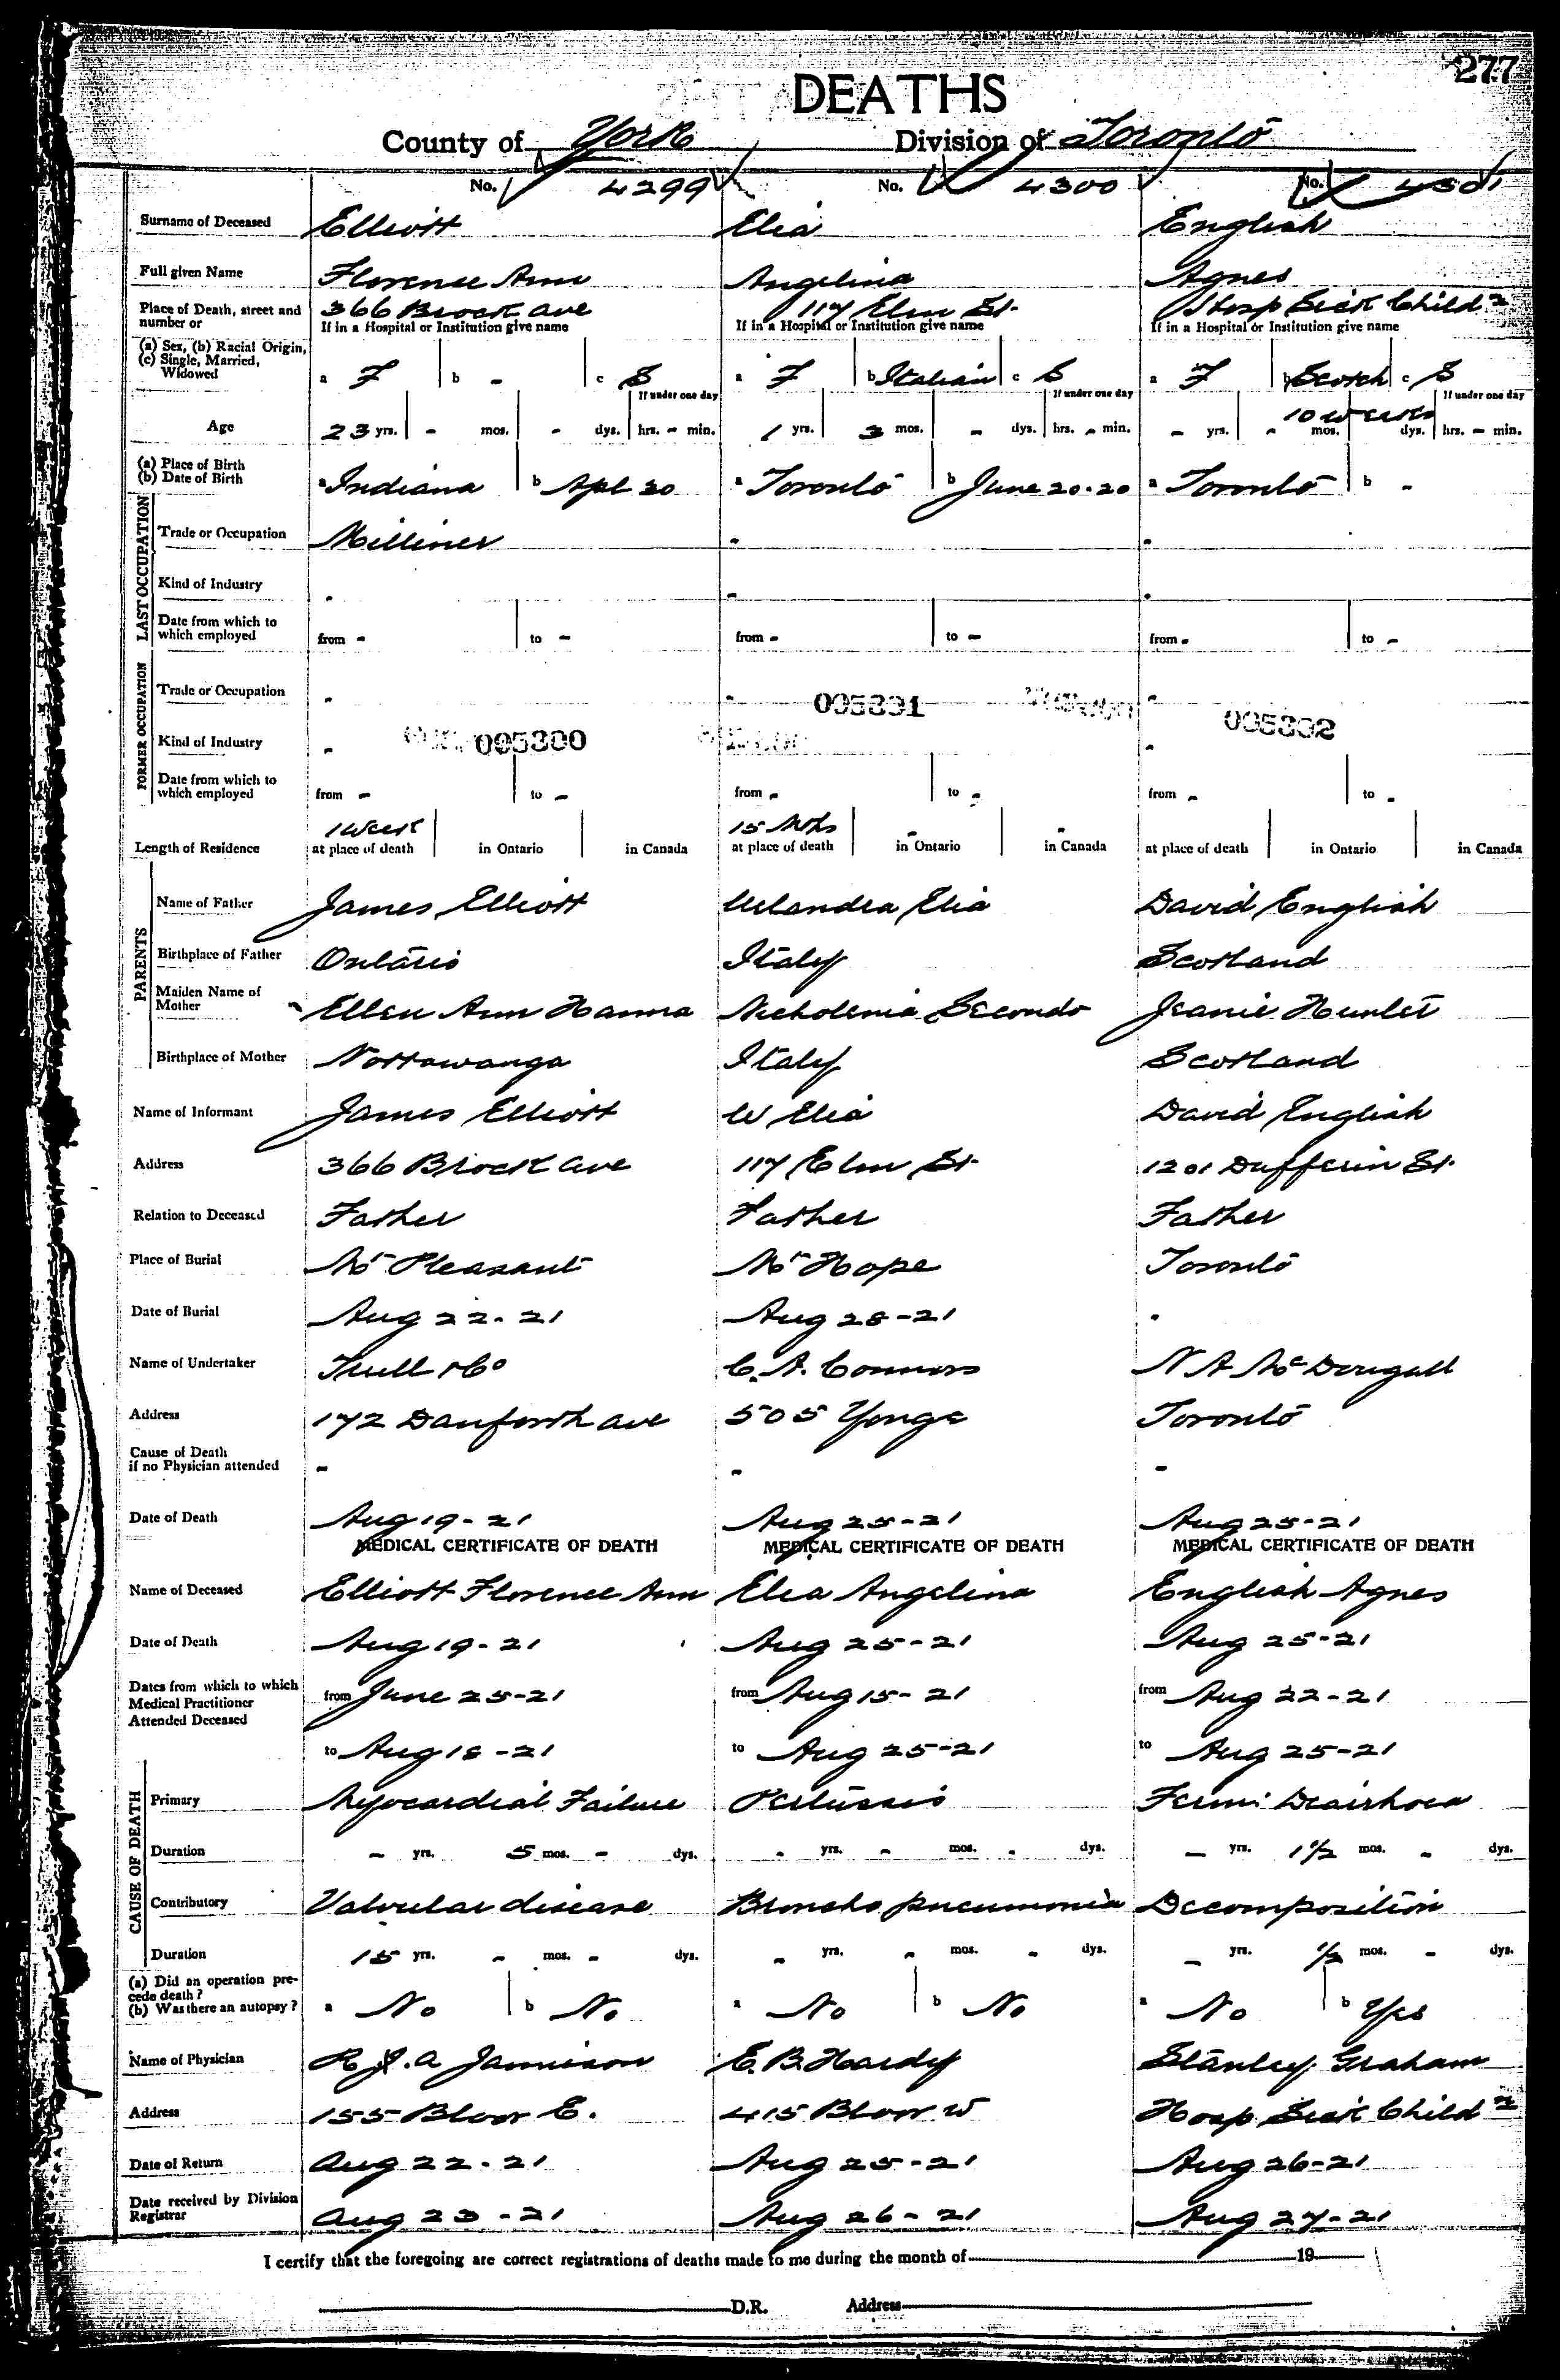 277
DEATHS
County of York Division of Toronto
No. 4299 No. 4300 No. 4301
Surname of Deceased Elliott Elia English
Full given Name Florence Ann Angelina Agnes
Place of Death, street and number or 366 Brock ave 117 Elm St. Hosp Sick Childn
If in a Hospital or Institution give name If in a Hospital or Institution give name If in a Hospital or Institution give name
(a) Sex, (b) Racial Origin,
(c) Single, Married,
Widowed
a F b - c S a F b Italian c S a F b Scotch c S
If under one day If under one day If under one day
Age 23 yrs. - mos. - dys. hrs. - min. 1 yrs. 3 mos. - dys. hrs. - min. - yrs. - mos. 10 weeks dys. hrs. - min.
(a) Place of Birth
(b) Date of Birth
a Indiana b Apl 30 a Toronto b June 20-20 a Toronto b -
LAST OCCUPATION
Trade or Occupation Milliner - -
Kind of Industry - - -
Date from which to
which employed from - to - from - to - from - to -
FORMER OCCUPATION
Trade or Occupation - - -
005391
005392
Kind of Industry - 005390 -
Date from which to
which employed from - to - from - to - from - to -
1 Week 15 Mths - -
Length of Residence at place of death in Ontario in Canada at place of death in Ontario in Canada at place of death in Ontario in Canada
PARENTS
Name of Father James Elliott Elia David English
Birthplace of Father Ontario Italy Scotland
Maiden Name of
Mother Ellen Ann Hanna Secondo Jeanie
Birthplace of Mother Nottawanga Italy Scotland
Name of Informant James Elliott W Elia David English
Address 366 Brock ave 117 Elm St. 1201 Dufferin St.
Relation to Deceased Father Father Father
Place of Burial Mt Pleasant Mt Hope Toronto
Date of Burial Aug 22-21 Aug 28-21 -
Name of Undertaker Trull & Co C. A. Connors N A McDougall
Address 172 Danforth ave 505 Yonge Toronto
Cause of Death
if no Physician attended - - -
Date of Death Aug 19-21 Aug 25-21 Aug 25-21
MEDICAL CERTIFICATE OF DEATH MEDICAL CERTIFICATE OF DEATH MEDICAL CERTIFICATE OF DEATH
Name of Deceased Elliott Florence Ann Elia Angelina English Agnes
Date of Death Aug 19-21 Aug 25-21 Aug 25-21
Dates from which to which
Medical Practitioner
Attended Deceased
from June 25-21 from Aug 15-21 from Aug 22-21
to Aug 18-21 to Aug 25-21 to Aug 25-21
CAUSE OF DEATH
Primary Myocardial Failure Pertussis Diairhoea
Duration - yrs. 5 mos. - dys. - yrs. - mos. - dys. - yrs. 1½ mos. - dys.
Contributory Valvular disease Broncho pneumonia Decomposition
Duration 15 yrs. - mos. - dys. - yrs. - mos. - dys. - yrs. ½ mos. - dys.
(a) Did an operation pre-
cede death?
(b) Was there an autopsy?
a No b No a No b No a No b Yes
Name of Physician R. J. A Jamieson E. B. Hardy Stanley Graham
Address 155 Bloor E. 415 Bloor W Hosp Sick Childn
Date of Return Aug 22-21 Aug 25-21 Aug 26-21
Date received by Division
Registrar Aug 23-21 Aug 26-21 Aug 27-21
I certify that the foregoing are correct registrations of deaths made to me during the month of 19
D.R. Address